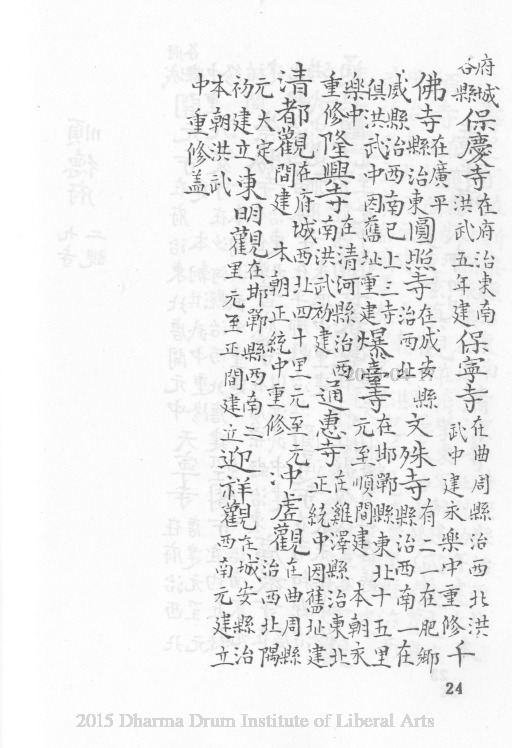 府城各縣保慶寺在府治東南洪武五年建保寧寺在曲周縣治西北洪武中建永樂中重修千
佛寺在廣平縣治東圓照寺在成安縣治西北文殊寺有二一在肥鄉縣治西南一在
威縣治西南已上三寺俱洪武中因舊址重建爆臺寺在邯鄲縣東北十五里元至順間建 本朝永
樂中重修隆興寺在清河縣治西南洪武初建通惠寺在雞澤縣治東北正統中因舊址建
清都觀在府城西北四十里元至元間建 本朝正統中重修冲虛觀在曲周縣治西北隅
元大定初建立東明觀在邯鄲縣西南二里元至正間建立迎祥觀在城安縣治西南元建立
本朝洪武中重修蓋
24
2015 Dharma Drum Institute of Liberal Arts